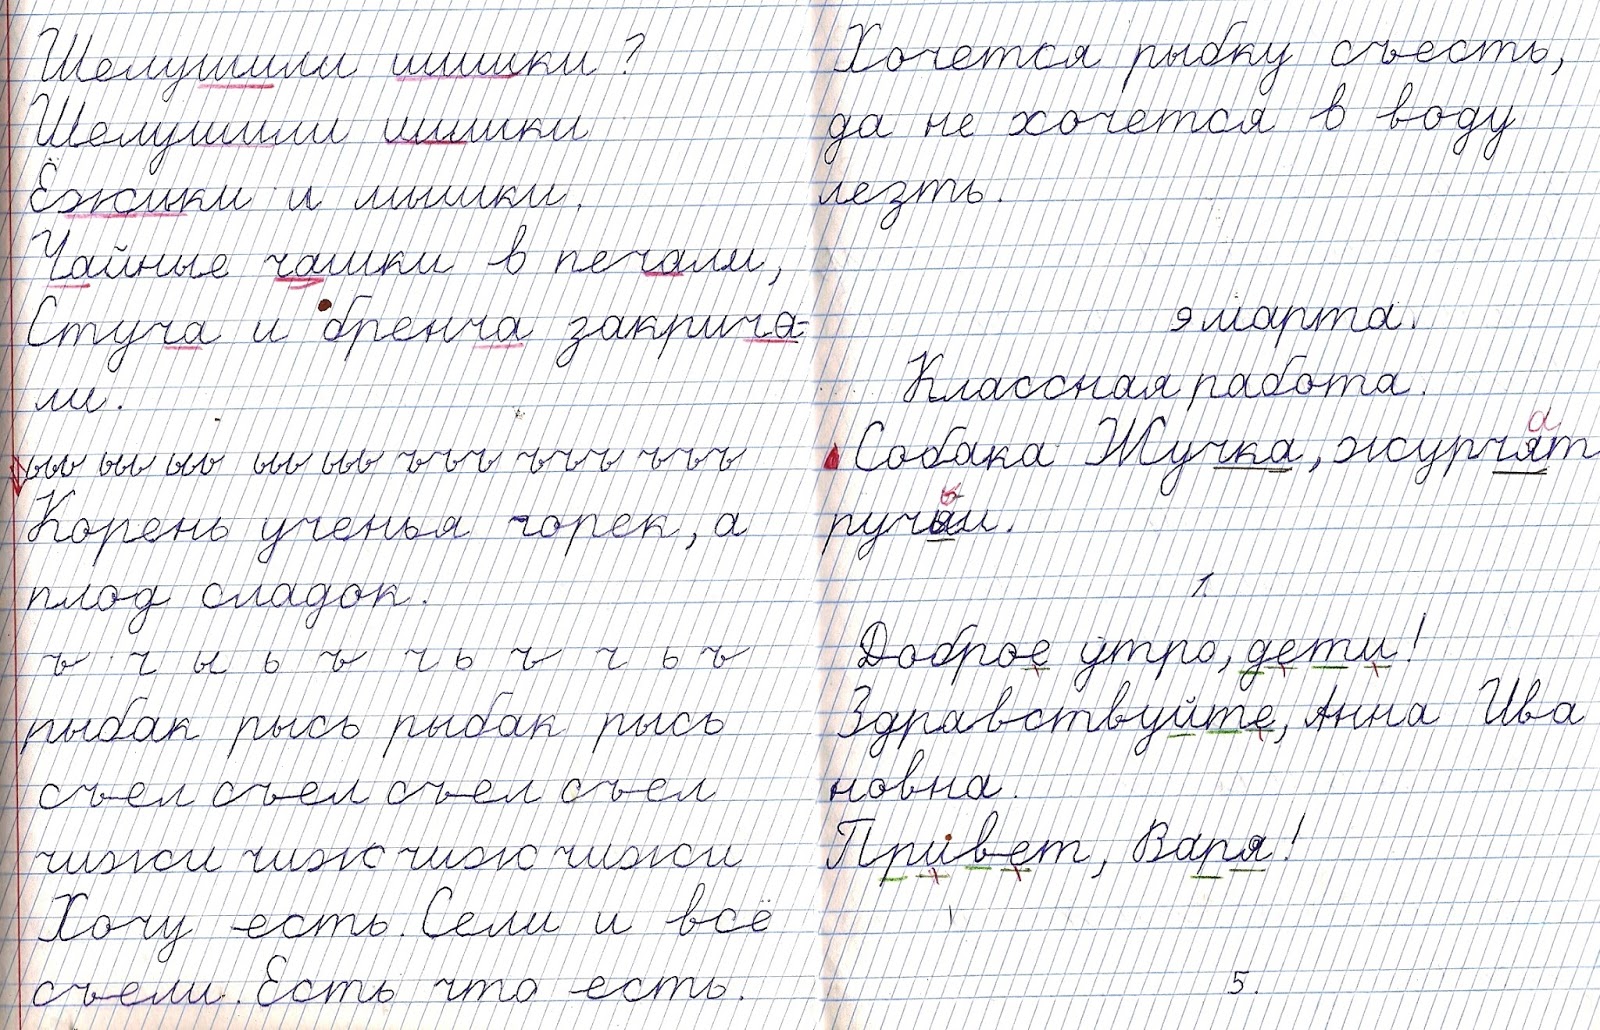 Шелушили шишки?
Шелушили шишки
Ёжики и мышки.
Чайные чашки в печали,
Стуча и бренча закрича-
ли.
ыы ыы ыы ыы ыы ъъъ ъъъ ъъъ
Корень ученья горек, а
плод сладок.
ъ ч ы ь ъ ч ь ъ ч ь ъ
рыбак рысь рыбак рысь
съел съел съел съел
чижи чиж чиж чижи
Хочу есть. Сели и всё
съели. Есть что есть.
Хочется рыбку съесть,
да не хочется в воду
лезть.
9 марта.
Классная работа.
а
Собака Жучка, журчят
ь
ручи.
1.
Доброе утро, дети!
Здравствуйте, Анна Ива
новна.
Привет, Варя!
5.